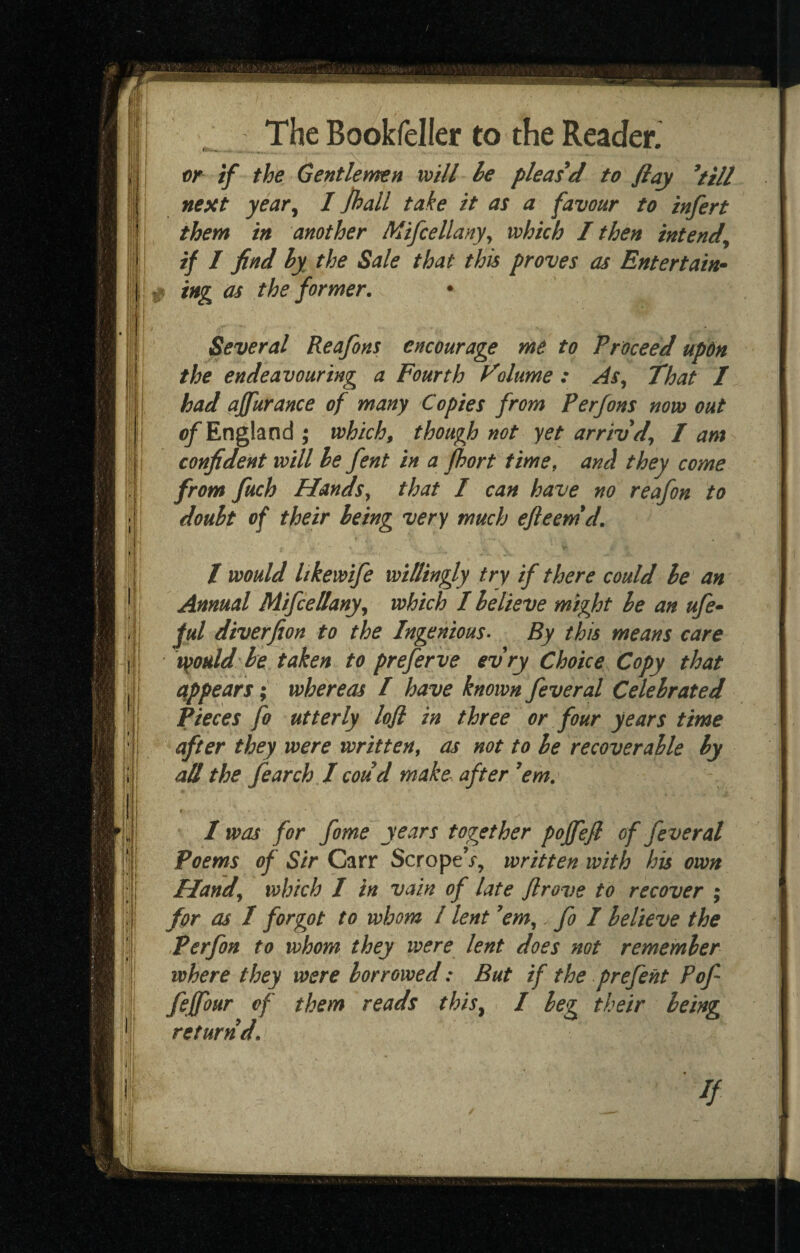 The Bookſeller to the Reader.
or if the Gentlemen will be pleas'd to ſtay 'till
next year, I ſhall take it as a favour to inſert
them in another Miſcellany, which I then intend,
if I find by the Sale that this proves as Entertain-
ing as the former.
Several Reaſons encourage me to Proceed upon
the endeavouring a Fourth Volume : As, That I
had aſſurance of many Copies from Perſons now out
of England ; which, though not yet arriv'd, I am
confident will be ſent in a ſhort time, and they come
from ſuch Hands, that I can have no reaſon to
doubt of their being very much eſteem'd.
I would likewiſe willingly try if there could be an
Annual Miſcellany, which I believe might be an uſe-
ful diverſion to the Ingenious. By this means care
would be taken to preſerve ev'ry Choice Copy that
appears ; whereas I have known ſeveral Celebrated
Pieces ſo utterly loſt in three or four years time
after they were written, as not to be recoverable by
all the ſearch I cou'd make after 'em.
I was for ſome years together poſſeſt of ſeveral
Poems of Sir Carr Scrope's, written with his own
Hand, which I in vain of late ſtrove to recover ;
for as I forgot to whom I lent 'em, ſo I believe the
Perſon to whom they were lent does not remember
where they were borrowed : But if the preſent Poſ-
ſeſſour of them reads this, I beg their being
return'd.
If